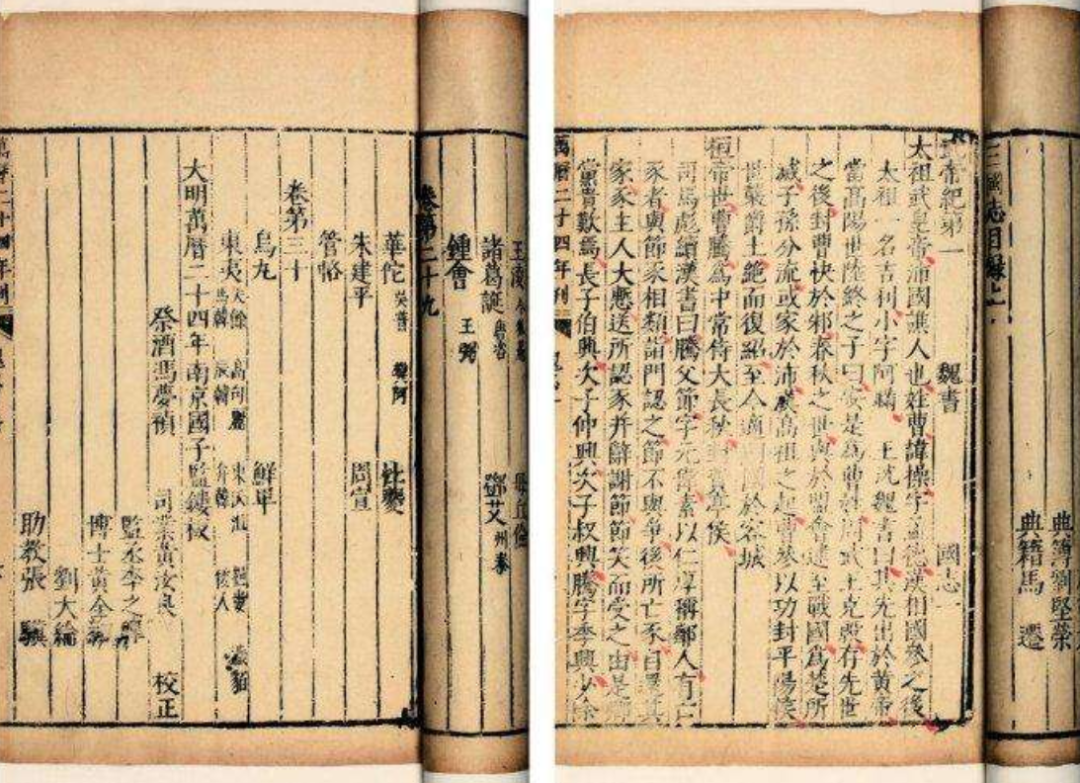 王淩 令狐愚 毌丘儉
諸葛誕 唐咨 鄧艾 州泰
鍾會 王弼
卷第二十九
華佗 吳普 樊阿 杜夔
朱建平 周宣
管輅
卷第三十
烏丸 鮮卑
東夷 夫餘 高句麗 東沃沮 挹婁 濊貊 馬韓 辰韓 弁韓 倭人
大明萬曆二十四年南京國子監鏤板
祭酒馮夢禎 司業黃汝良 校正
監丞李之
博士黃全
劉大綸
助教張 驥
萬曆二十四年刊
典簿劉堅榮
典籍馬 遷
三國志目錄上
武帝紀第一 魏書 國志一
太祖武皇帝沛國譙人也姓曹諱操字孟德漢相國參之後
太祖一名吉利小字阿瞞 王沈魏書曰其先出於黃帝
當高陽世陸終之子曰安是為曹姓周武王克殷存先世
之後封曹俠於邾春秋之世與於盟會逮至戰國為楚所
滅子孫分流或家於沛漢高祖之起曹參以功封平陽侯
世襲爵土絕而復紹至今適嗣國於容城
桓帝世曹騰為中常侍大長秋封費亭侯
司馬彪續漢書曰騰父節字元偉素以仁厚稱鄰人有亡
豕者與節豕相類詣門認之節不與爭後所亡豕自還其
家豕主人大慙送所認豕并辭謝節節笑而受之由是鄉
黨貴歎焉長子伯興次子仲興次子叔興騰字季興少除
萬曆二十四年刊